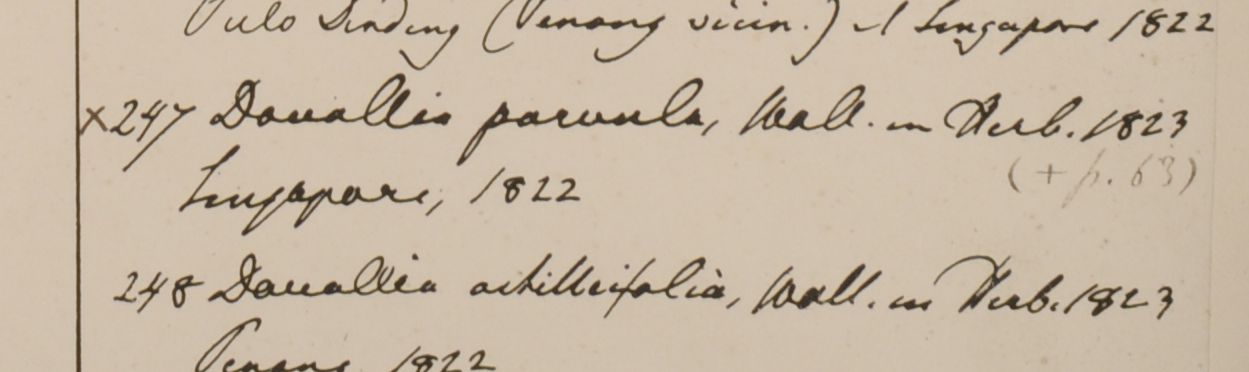 Pulo Dinding (Penang vicin.) et Singapore 1822
x247 Davallia parvula, Wall. in Herb. 1823
(+ p. 63)
Singapore, 1822
248 Davallia achilleifolia, Wall. in Herb. 1823
Penang 1822